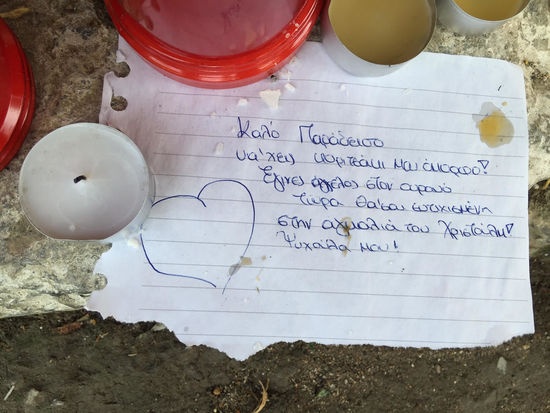 Καλό Παράδεισο
να 'χεις κοριτσάκι μου όμορφο!
Έγινες άγγελος στον ουρανό
Τώρα θα 'σαι ευτυχισμένη
στην αγκαλιά του Χριστούλη!
Ψυχούλα μου!